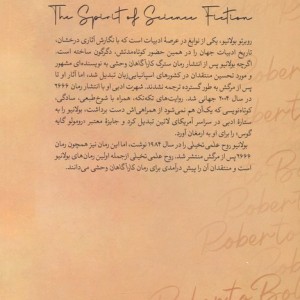 The Spirit of Science Fiction
روبرتو بولانیو، یکی از نوابغ در عرصهٔ ادبیات است که با نگارش آثاری درخشان،
تاریخ ادبیات جهان را در همین حضور کوتاه‌مدتش، دگرگون ساخته است.
گرچه بولانیو پس از انتشار رمان سترگ کارآگاهان وحشی به نویسنده‌ای مشهور
و مورد تحسین منتقدان در کشورهای اسپانیایی‌زبان تبدیل شد، اما آثار او تا
پس از مرگش به طور گسترده ترجمه نشدند. شهرت ادبی او با انتشار رمان ۲۶۶۶
در سال ۲۰۰۴ جهانی شد. روایت‌های تکه‌تکه، همراه با شوخ‌طبعی، سادگی،
کوتاه‌نویسی که یک‌آن هم نمی‌شود از همراهی‌اش دست برداشت، بولانیو را به
ستارهٔ ادبی در سراسر آمریکای لاتین تبدیل کرد و جایزهٔ معتبر «رومولو گایه
گوس» را برای او به ارمغان آورد.
بولانیو روح علمی‌تخیلی را در سال ۱۹۸۴ نوشت، اما این رمان نیز همچون رمان
۲۶۶۶ پس از مرگش منتشر شد. روح علمی‌تخیلی ازجمله اولین رمان‌های بولانیو
است و منتقدان آن را پیش درآمدی برای رمان کارآگاهان وحشی می‌دانند.
Roberto
Roberto
Roberto Bol